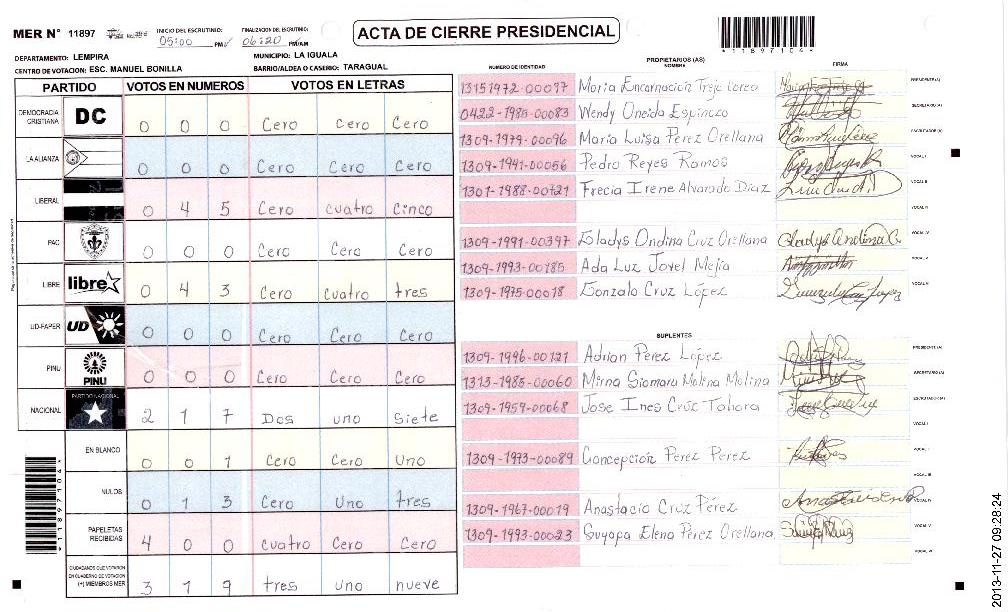 MER Nº 11897
INICIO DEL ESCRUTINIO: 05:00 PM
FINALIZACION DEL ESCRUTINIO: 06:20 PM/AM
ACTA DE CIERRE PRESIDENCIAL
*11897104*
DEPARTAMENTO: LEMPIRA
MUNICIPIO: LA IGUALA
CENTRO DE VOTACION: ESC. MANUEL BONILLA
BARRIO/ALDEA O CASERIO: TARAGUAL
PARTIDO VOTOS EN NUMEROS VOTOS EN LETRAS
DEMOCRACIA CRISTIANA DC 0 0 0 Cero Cero Cero
LA ALIANZA 0 0 0 Cero Cero Cero
LIBERAL 0 4 5 Cero cuatro Cinco
PAC 0 0 0 Cero Cero Cero
LIBRE libre 0 4 3 Cero Cuatro tres
UD-FAPER UD 0 0 0 Cero Cero Cero
PINU PINU 0 0 0 Cero Cero Cero
NACIONAL PARTIDO NACIONAL 2 1 7 Dos uno Siete
EN BLANCO 0 0 1 Cero Cero Uno
NULOS 0 1 3 Cero Uno tres
PAPELETAS RECIBIDAS 4 0 0 cuatro Cero Cero
CIUDADANOS QUE VOTARON EN CUADERNO DE VOTACION (+) MIEMBROS MER 3 1 9 tres uno nueve
*11897104*
PROPIETARIOS (AS)
NUMERO DE IDENTIDAD NOMBRE FIRMA
13151972-00097 Maria Encarnacion Trejo Lorea PRESIDENTE(A)
0422-1985-00083 Wendy Oneida Espinoza SECRETARIO (A)
1309-1979-00096 Maria Luisa Perez Orellana ESCRUTADOR (A)
1309-1941-00056 Pedro Reyes Ramos VOCAL I
1301-1988-00121 Frecia Irene Alvarado Diaz VOCAL II
VOCAL III
1309-1991-00397 Gladys Ondina Cruz Orellana VOCAL IV
1309-1993-00185 Ada Luz Jovel Mejia VOCAL V
1309-1975-00018 Gonzalo Cruz López VOCAL VI
SUPLENTES
1309-1996-00121 Adrian Perez López PRESIDENTE (A)
1313-1985-00060 Mirna Siomara Molina Molina SECRETARIO (A)
1309-1959-00068 Jose Ines Cruz ESCRUTADOR (A)
VOCAL I
1309-1973-00089 Concepcion Perez Perez VOCAL II
VOCAL III
1309-1967-00019 Anastacio Cruz Pérez VOCAL IV
1309-1993-00023 Suyapa Elena Perez Orellana VOCAL V
VOCAL VI
2013-11-27 09:28:24